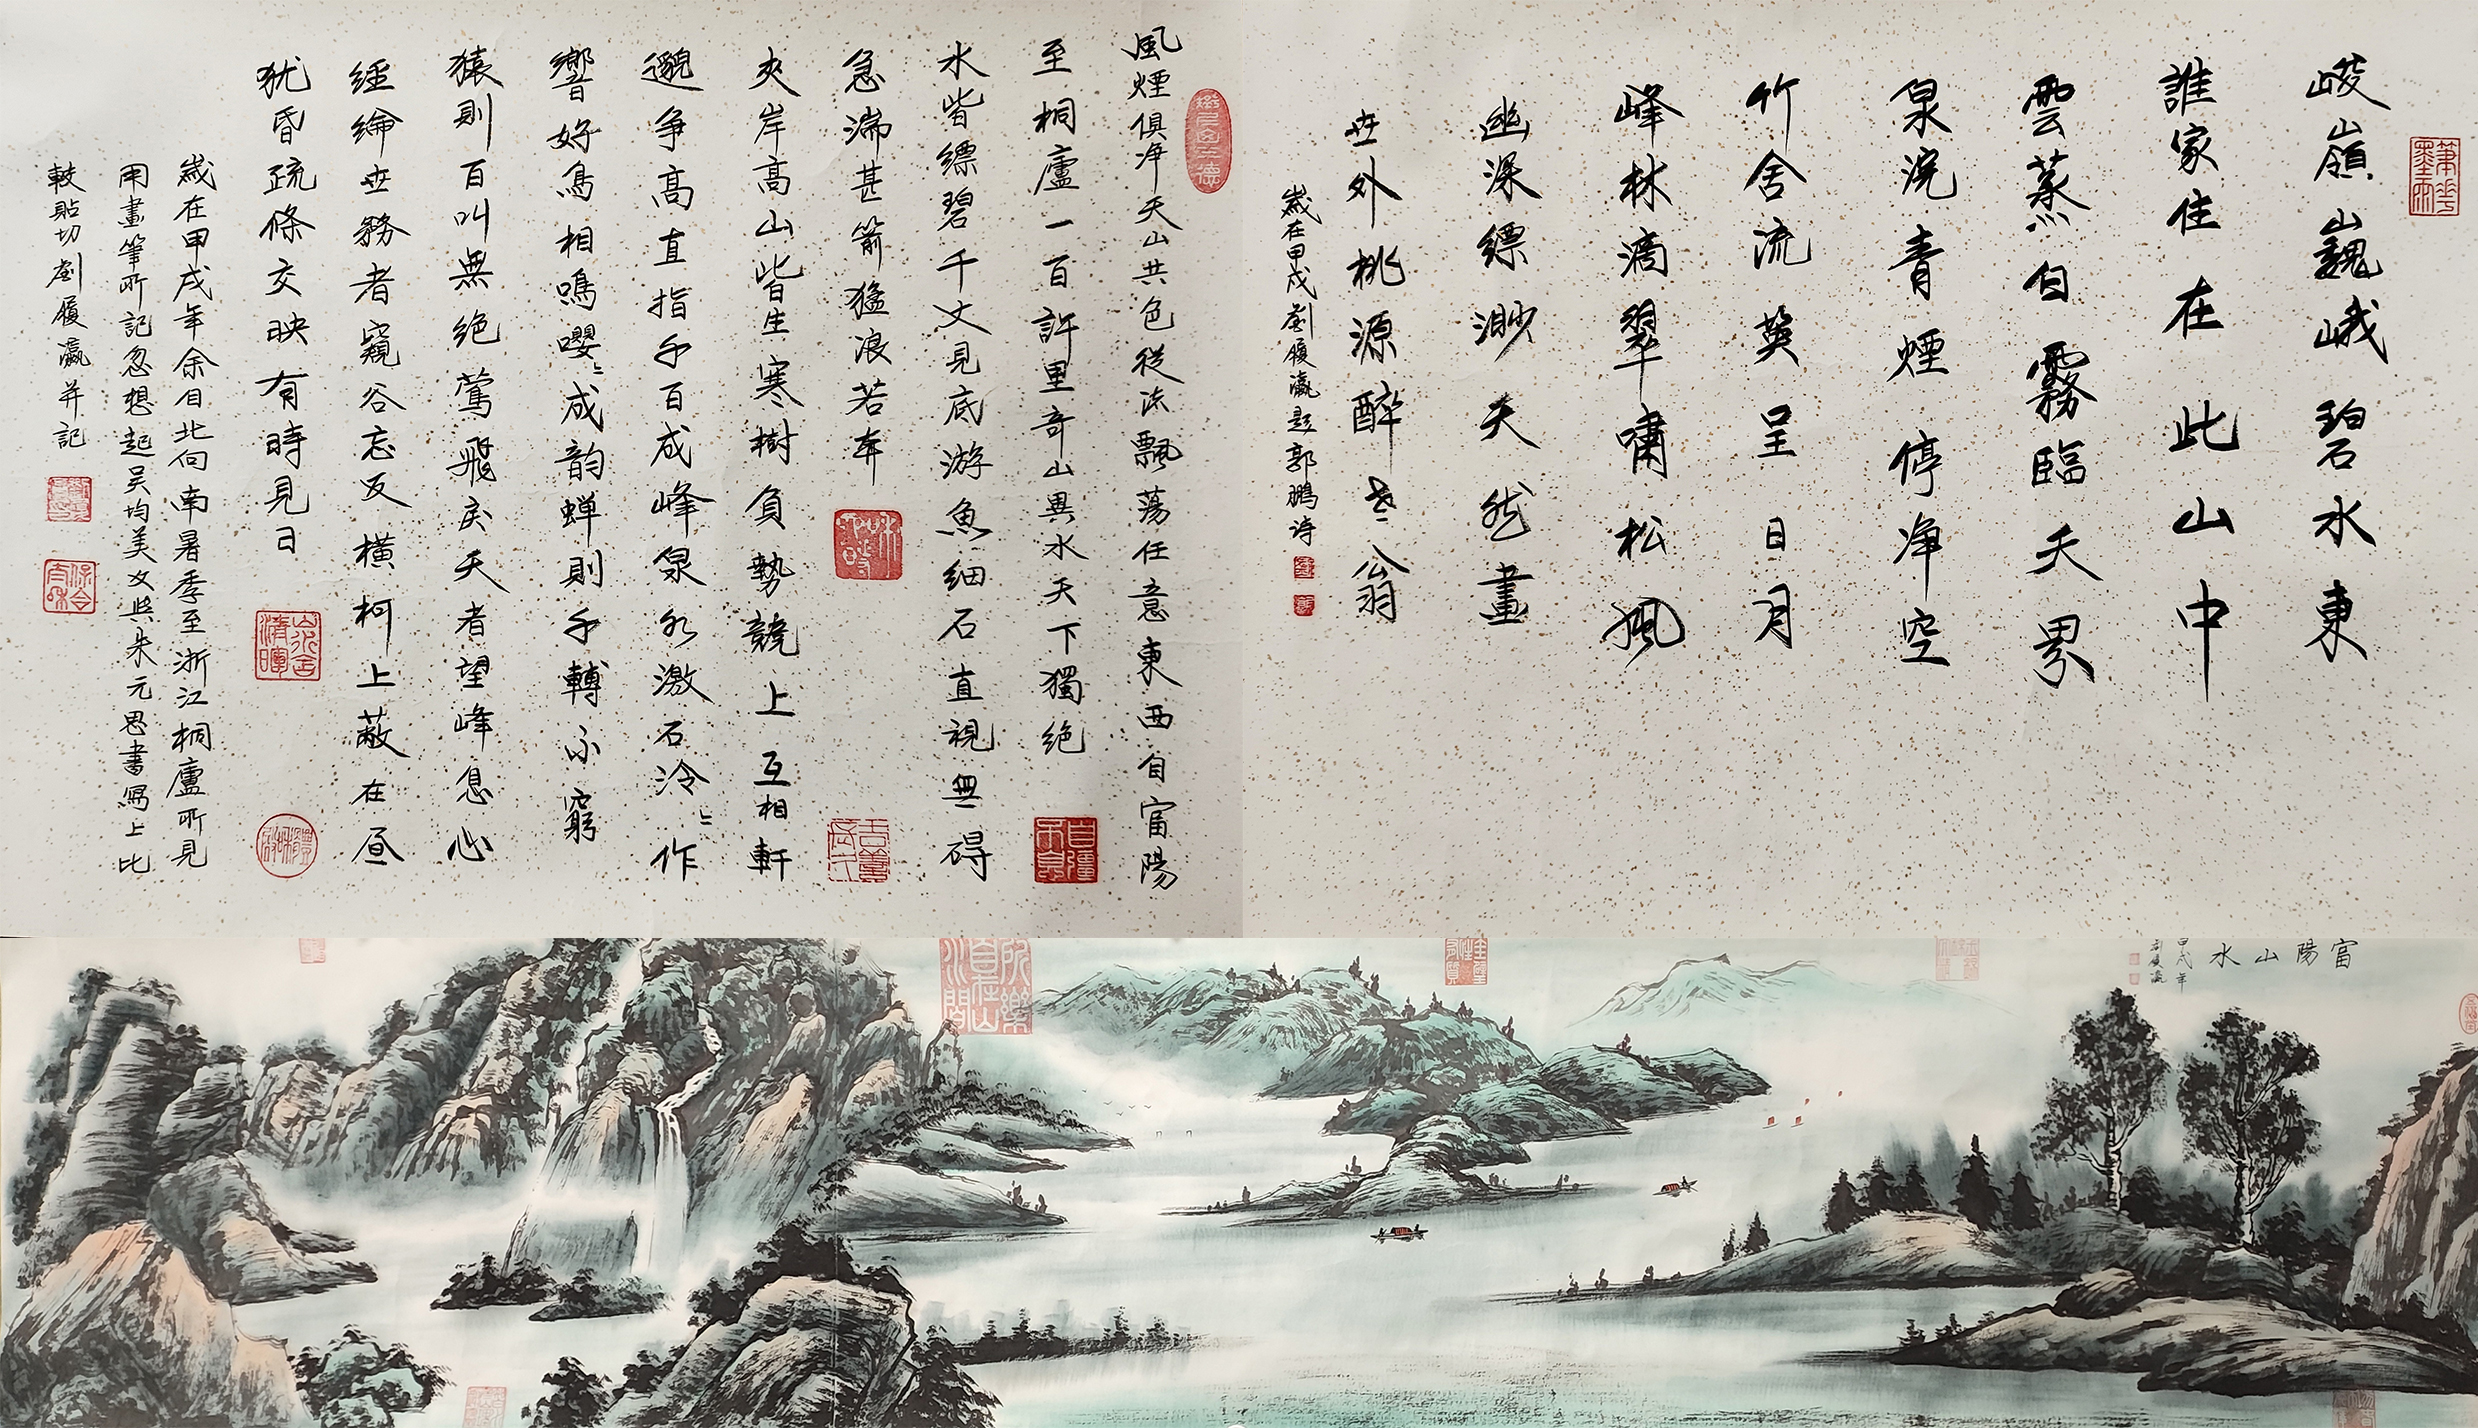 峻嶺巍峨碧水東
誰家住在此山中
雲蒸白霧臨天界
泉浣青煙停淨空
竹舍流英呈日月
峰林滴翠嘯松風
幽深縹渺天然畫
世外桃源醉老翁
歲在甲戌劉履瀛題郭鵬詩
風煙俱净天山共色從流飄蕩任意東西自富陽
至桐廬一百許里奇山異水天下獨絕
水皆縹碧千丈見底游魚細石直視無碍
急湍甚箭猛浪若奔
夾岸高山皆生寒樹負勢競上互相軒
邈爭高直指千百成峰泉水激石泠〻作
響好鳥相鳴嚶〻成韵蝉則千轉不窮
猿則百叫無絕鳶飛戾天者望峰息心
經綸世務者窺谷忘反橫柯上蔽在昼
犹昏疏條交映有時見日
歲在甲戌年余自北向南暑季至浙江桐廬所見
用畫筆所記忽想起吴均美文與朱元思書寫上比
較貼切劉履瀛并記
富陽山水
甲戌年
劉履瀛